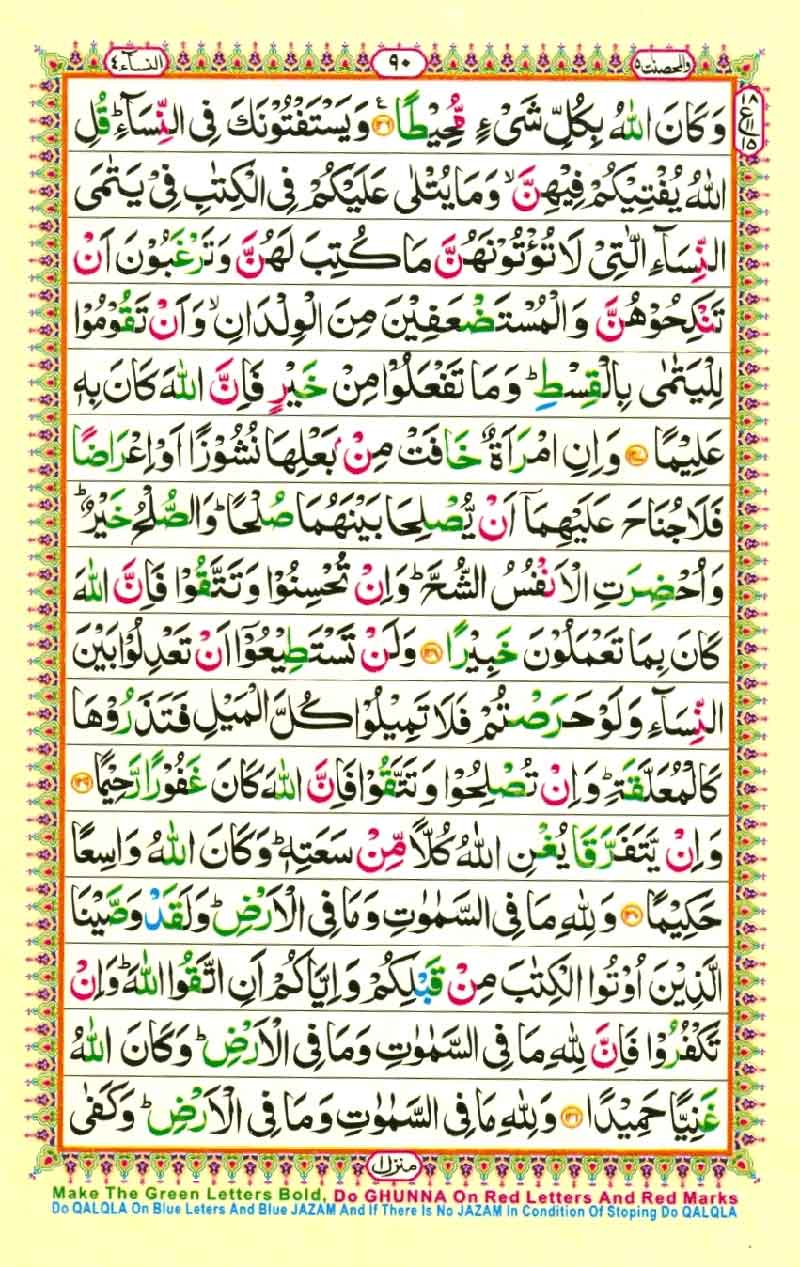 النسآء٤ ٩٠ والمحصنت٥
١٨ ع ١١ ١٥
وَكَانَ اللّٰهُ بِكُلِّ شَىْءٍ مُّحِيْطًا ﴿١٢٦﴾ وَيَسْتَفْتُوْنَكَ فِى النِّسَآءِ ؕ قُلِ
اللّٰهُ يُفْتِيْكُمْ فِيْهِنَّ ۙ وَمَا يُتْلٰى عَلَيْكُمْ فِى الْكِتٰبِ فِىْ يَتٰمَى
النِّسَآءِ الّٰتِىْ لَا تُؤْتُوْنَهُنَّ مَا كُتِبَ لَهُنَّ وَتَرْغَبُوْنَ اَنْ
تَنْكِحُوْهُنَّ وَالْمُسْتَضْعَفِيْنَ مِنَ الْوِلْدَانِ ۙ وَاَنْ تَقُوْمُوْا
لِلْيَتٰمٰى بِالْقِسْطِ ؕ وَمَا تَفْعَلُوْا مِنْ خَيْرٍ فَاِنَّ اللّٰهَ كَانَ بِهٖ
عَلِيْمًا ﴿١٢٧﴾ وَاِنِ امْرَاَةٌ خَافَتْ مِنْۢ بَعْلِهَا نُشُوْزًا اَوْ اِعْرَاضًا
فَلَا جُنَاحَ عَلَيْهِمَاۤ اَنْ يُّصْلِحَا بَيْنَهُمَا صُلْحًا ؕ وَالصُّلْحُ خَيْرٌ ؕ
وَاُحْضِرَتِ الْاَنْفُسُ الشُّحَّ ؕ وَاِنْ تُحْسِنُوْا وَتَتَّقُوْا فَاِنَّ اللّٰهَ
كَانَ بِمَا تَعْمَلُوْنَ خَبِيْرًا ﴿١٢٨﴾ وَلَنْ تَسْتَطِيْعُوْۤا اَنْ تَعْدِلُوْا بَيْنَ
النِّسَآءِ وَلَوْ حَرَصْتُمْ فَلَا تَمِيْلُوْا كُلَّ الْمَيْلِ فَتَذَرُوْهَا
كَالْمُعَلَّقَةِ ؕ وَاِنْ تُصْلِحُوْا وَتَتَّقُوْا فَاِنَّ اللّٰهَ كَانَ غَفُوْرًا رَّحِيْمًا ﴿١٢٩﴾
وَاِنْ يَّتَفَرَّقَا يُغْنِ اللّٰهُ كُلًّا مِّنْ سَعَتِهٖ ؕ وَكَانَ اللّٰهُ وَاسِعًا
حَكِيْمًا ﴿١٣٠﴾ وَلِلّٰهِ مَا فِى السَّمٰوٰتِ وَمَا فِى الْاَرْضِ ؕ وَلَقَدْ وَصَّيْنَا
الَّذِيْنَ اُوْتُوا الْكِتٰبَ مِنْ قَبْلِكُمْ وَاِيَّاكُمْ اَنِ اتَّقُوا اللّٰهَ ؕ وَاِنْ
تَكْفُرُوْا فَاِنَّ لِلّٰهِ مَا فِى السَّمٰوٰتِ وَمَا فِى الْاَرْضِ ؕ وَكَانَ اللّٰهُ
غَنِيًّا حَمِيْدًا ﴿١٣١﴾ وَلِلّٰهِ مَا فِى السَّمٰوٰتِ وَمَا فِى الْاَرْضِ ؕ وَكَفٰى
منزل١
Make The Green Letters Bold, Do GHUNNA On Red Letters And Red Marks
Do QALQLA On Blue Leters And Blue JAZAM And If There Is No JAZAM In Condition Of Stoping Do QALQLA